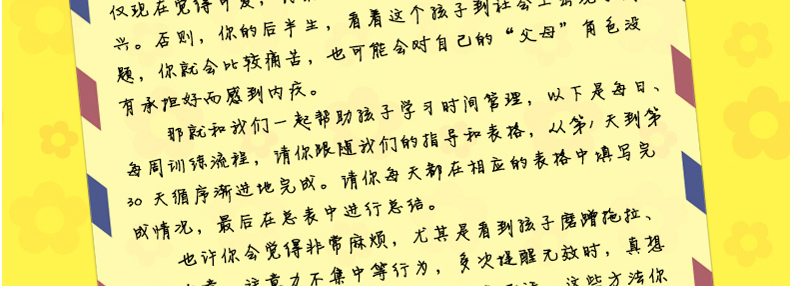 仅现在觉得可爱，
兴。否则，你的后半生，看着这个孩子到社会上
题，你就会比较痛苦，也可能会对自己的“父母”角色没
有承担好而感到内疚。
那就和我们一起帮助孩子学习时间管理，以下是每日、
每周训练流程，请你跟随我们的指导和表格，从第1天到第
30天循序渐进地完成。请你每天都在相应的表格中填写完
成情况，最后在总表中进行总结。
也许你会觉得非常麻烦，尤其是看到孩子磨蹭拖拉、
注意力不集中等行为，多次提醒无效时，真想
这些方法你